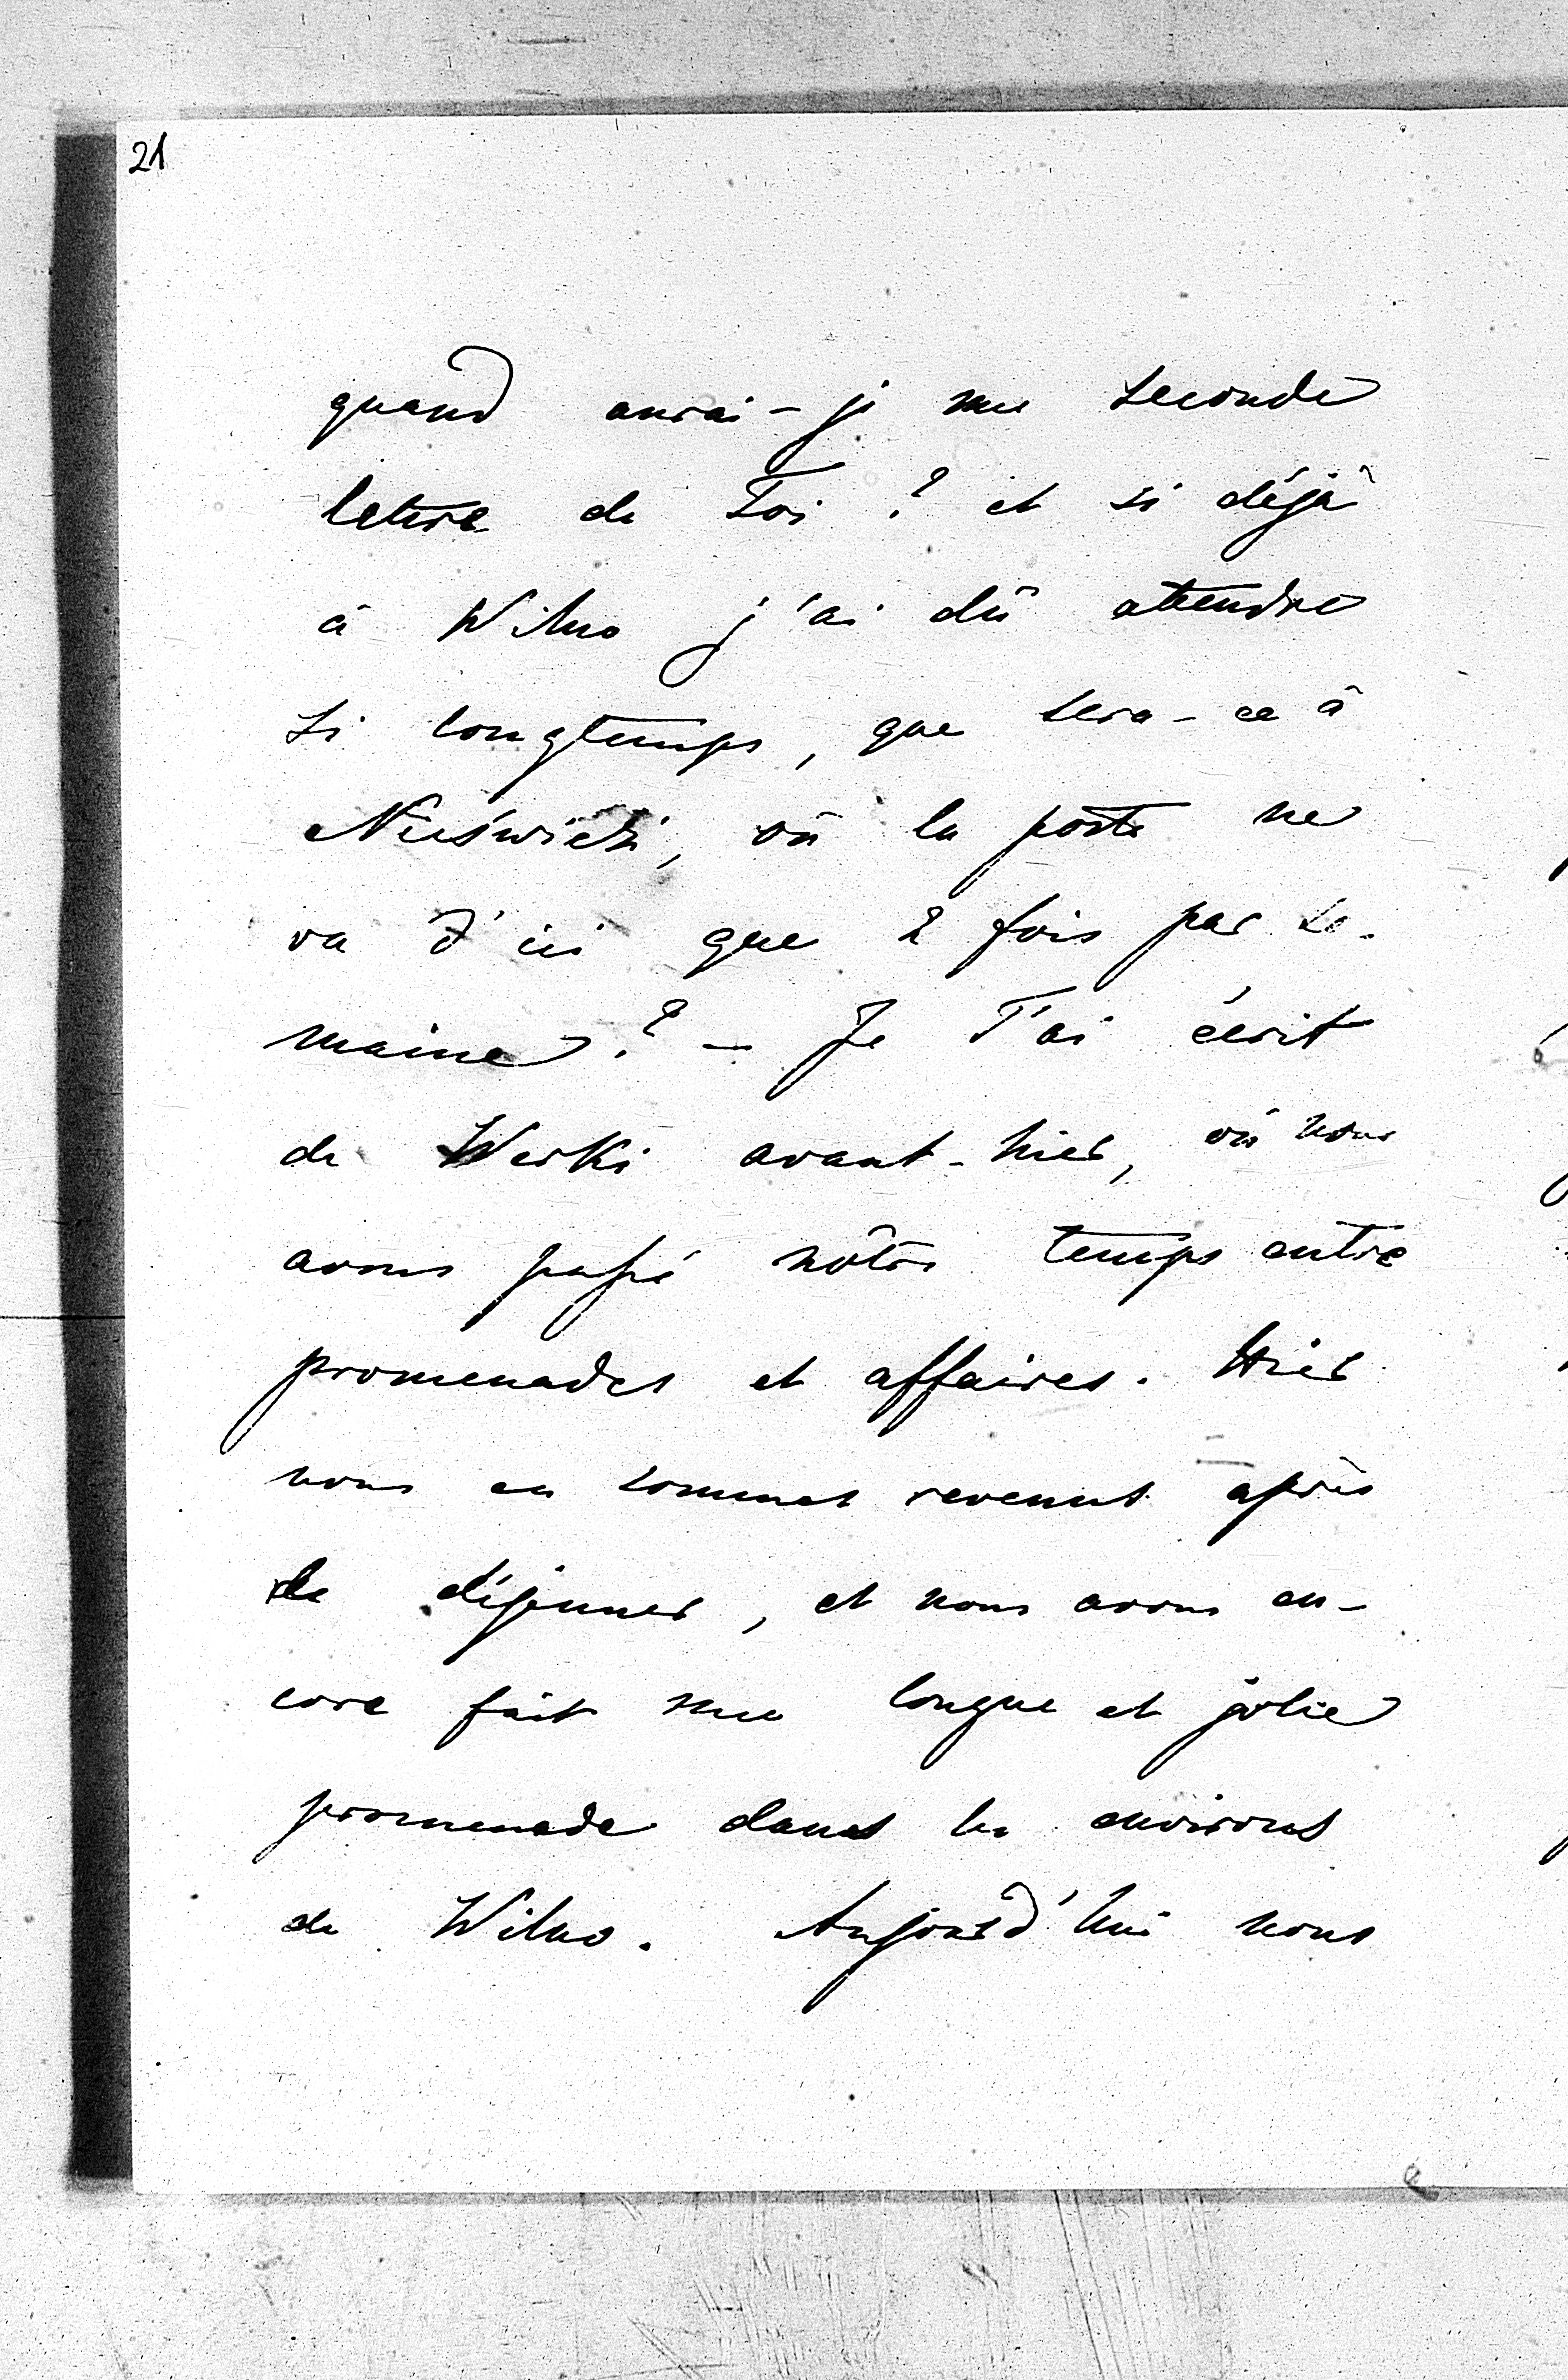 21
quand aurai-je une seconde
lettre de Toi ? et si déjà
à Wilno j'ai dû attendre
si longtemps, que sera-ce à
Nieświeź, où la poste ne
va d'ici que 2 fois par se-
maine ? – Je T'ai écrit
de Werki avant-hier, où nous
avons passé nôtre temps entre
promenades et affaires. Hier
nous en sommes revenus après
le déjeuner, et nous avons en-
core fait une longue et jolie
promenade dans les environs
de Wilno. Aujourd'hui nous